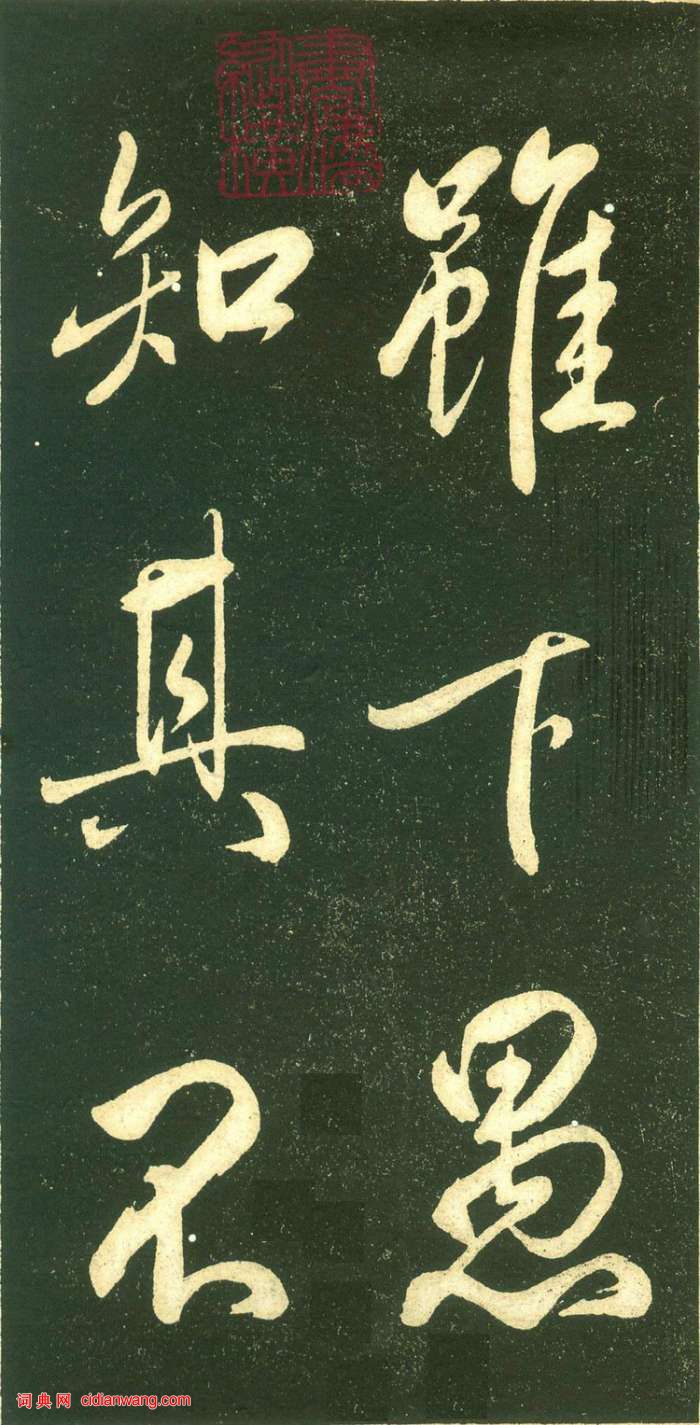 雖下愚
知其不
词典网 cidianwang.com